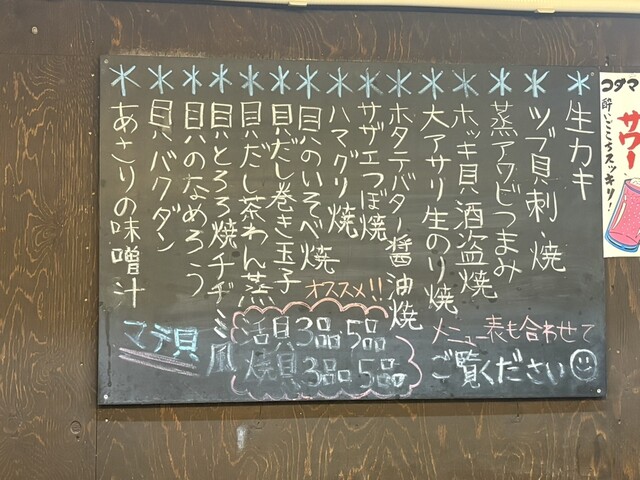 ＊生カキ
＊ツブ貝刺・焼
＊蒸アワビつまみ
＊ホッキ貝酒盗焼
＊大アサリ生のり焼
＊ホタテバター醤油焼
＊サザエつぼ焼
＊ハマグリ焼
＊貝のいそべ焼
＊貝だし巻き玉子
＊貝だし茶わん蒸
＊貝とろろ焼チヂミ風
＊貝のなめろう
＊貝バクダン
＊あさりの味噌汁
オススメ!!
活貝3品・5品
焼貝3品・5品
マテ貝
メニュー表も合わせて
ご覧ください
コダマ
サワー
酔いごこちスッキリ!